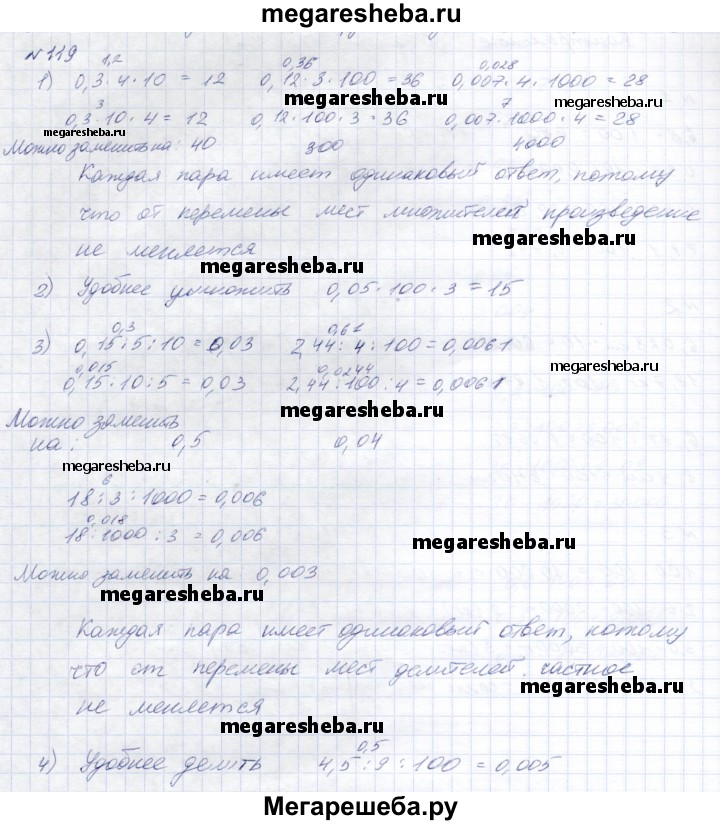 megaresheba.ru
№119
1,2 0,36 0,028
1) 0,3·4·10 = 12 0,12·3·100 = 36 0,007·4·1000 = 28
megaresheba.ru
3 7
0,3·10·4 = 12 0,12·100·3 = 36 0,007·1000·4 = 28
megaresheba.ru megaresheba.ru
Можно заменить на: 40 300 4000
Каждая пара имеет одинаковый ответ, потому
что от перемены мест множителей произведение
megaresheba.ru
не меняется
megaresheba.ru
2) Удобнее умножить 0,05·100·3 = 15
0,3 0,61
3) 0,15:5:10 = 0,03 2,44:4:100 = 0,0061
megaresheba.ru
0,015 0,0244
0,15·10:5 = 0,03 2,44:100:4 = 0,0061
megaresheba.ru
Можно заменить
на: 0,5 0,04
megaresheba.ru
6
18:3:1000 = 0,006
0,018
18:1000:3 = 0,006
megaresheba.ru
Можно заменить на 0,003
megaresheba.ru
Каждая пара имеет одинаковый ответ, потому
что от перемены мест делителей частное
megaresheba.ru
не меняется
megaresheba.ru
0,5
4) Удобнее делить 4,5:9:100 = 0,005
Мегарешеба.ру